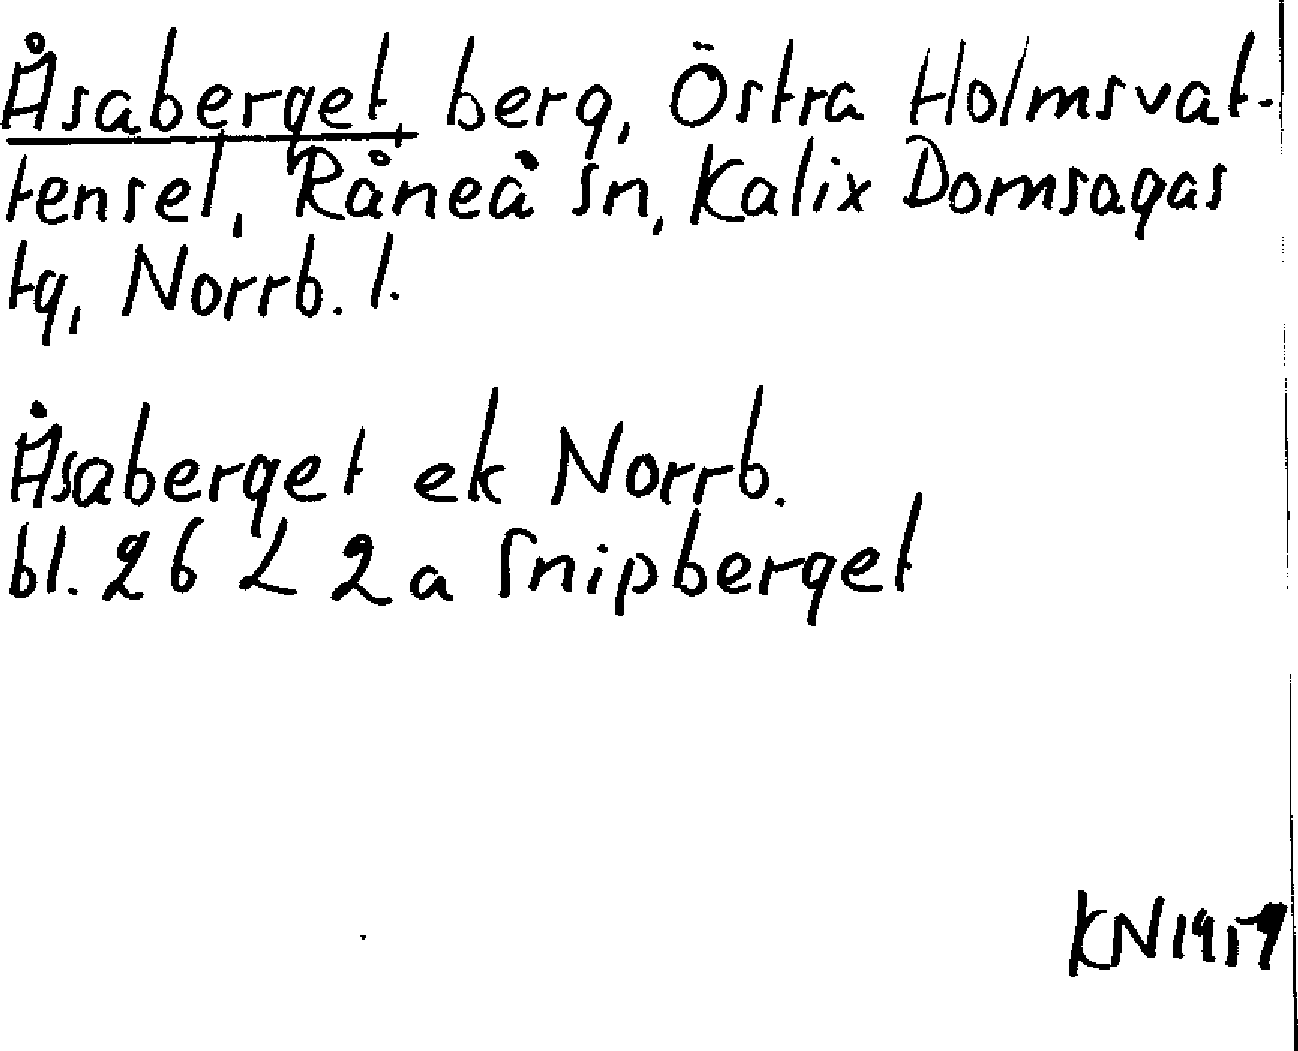 Åsaberget, berg, Östra Holmsvat-
tensel, Råneå sn, Kalix Domsagas
tg, Norrb. l.
Åsaberget ek Norrb.
bl. 26 L 2a Snipberget